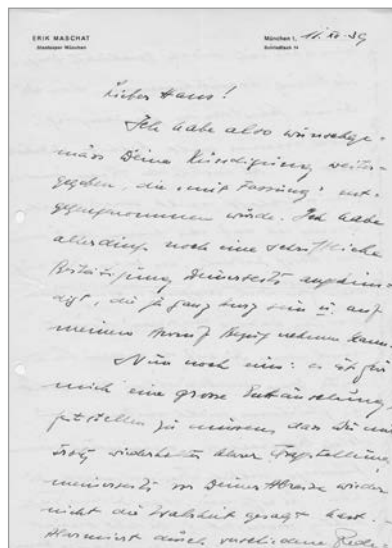 ERIK MASCHAT
Staatsoper München
München 1, 11. XI. 39
Schließfach 14
Lieber Hans!
Ich habe also wunschge-
mäss Deine Kündigung weiter-
gegeben, die „mit Fassung“ ent-
gegengenommen wurde. Ich habe
allerdings noch eine schriftliche
Bestätigung Deinerseits angekün-
digt, die ja ganz kurz sein u. auf
meinen Anruf Bezug nehmen kann.
Nun noch eins: es ist für
mich eine grosse Enttäuschung,
feststellen zu müssen, dass Du mir
trotz wiederholter klarer Fragestellung
meinerseits vor Deiner Abreise wieder
nicht die Wahrheit gesagt hast.
Alarmiert durch verschiedene